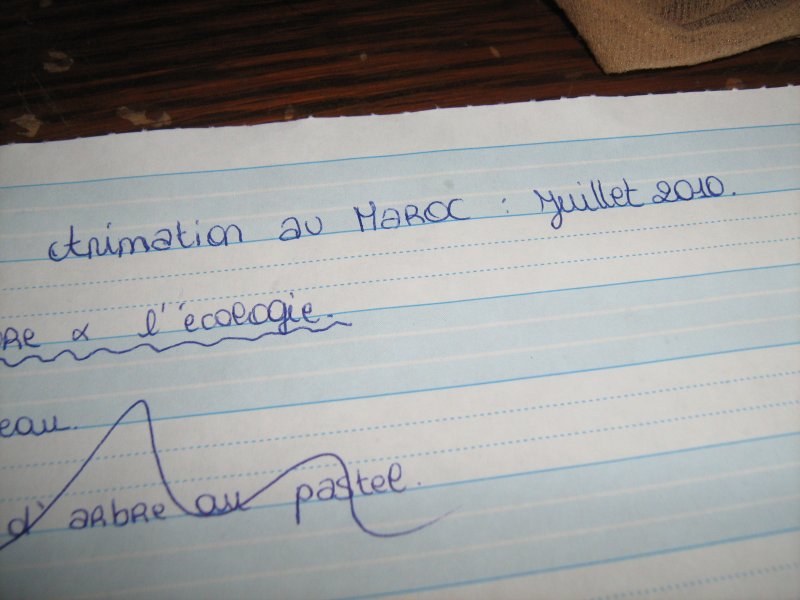 Animation au MAROC : Juillet 2010.
l'écologie.
eau.
d'arbre au pastel.